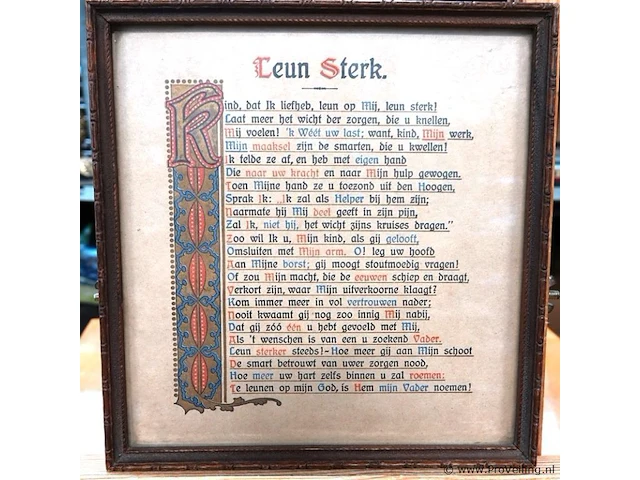 Leun Sterk.
Kind, dat Ik liefheb, leun op Mij, leun sterk!
Laat meer het wicht der zorgen, die u knellen,
Mij voelen! 'k Wéét uw last; want, kind, Mijn werk,
Mijn maaksel zijn de smarten, die u kwellen!
Ik telde ze af, en heb met eigen hand
Die naar uw kracht en naar Mijn hulp gewogen.
Toen Mijne hand ze u toezond uit den Hoogen,
Sprak Ik: „Ik zal als Helper bij hem zijn;
Naarmate hij Mij deel geeft in zijn pijn,
Zal Ik, niet hij, het wicht zijns kruises dragen.”
Zoo wil Ik u, Mijn kind, als gij gelooft,
Omsluiten met Mijn arm. O! leg uw hoofd
Aan Mijne borst; gij moogt stoutmoedig vragen!
Of zou Mijn macht, die de eeuwen schiep en draagt,
Verkort zijn, waar Mijn uitverkoorne klaagt?
Kom immer meer in vol vertrouwen nader;
Nooit kwaamt gij nog zoo innig Mij nabij,
Dat gij zóó één u hebt gevoeld met Mij,
Als 't wenschen is van een u zoekend Vader.
Leun sterker steeds!- Hoe meer gij aan Mijn schoot
De smart betrouwt van uwer zorgen nood,
Hoe meer uw hart zelfs binnen u zal roemen:
Te leunen op mijn God, is Hem mijn Vader noemen!
© www.ProVeiling.nl